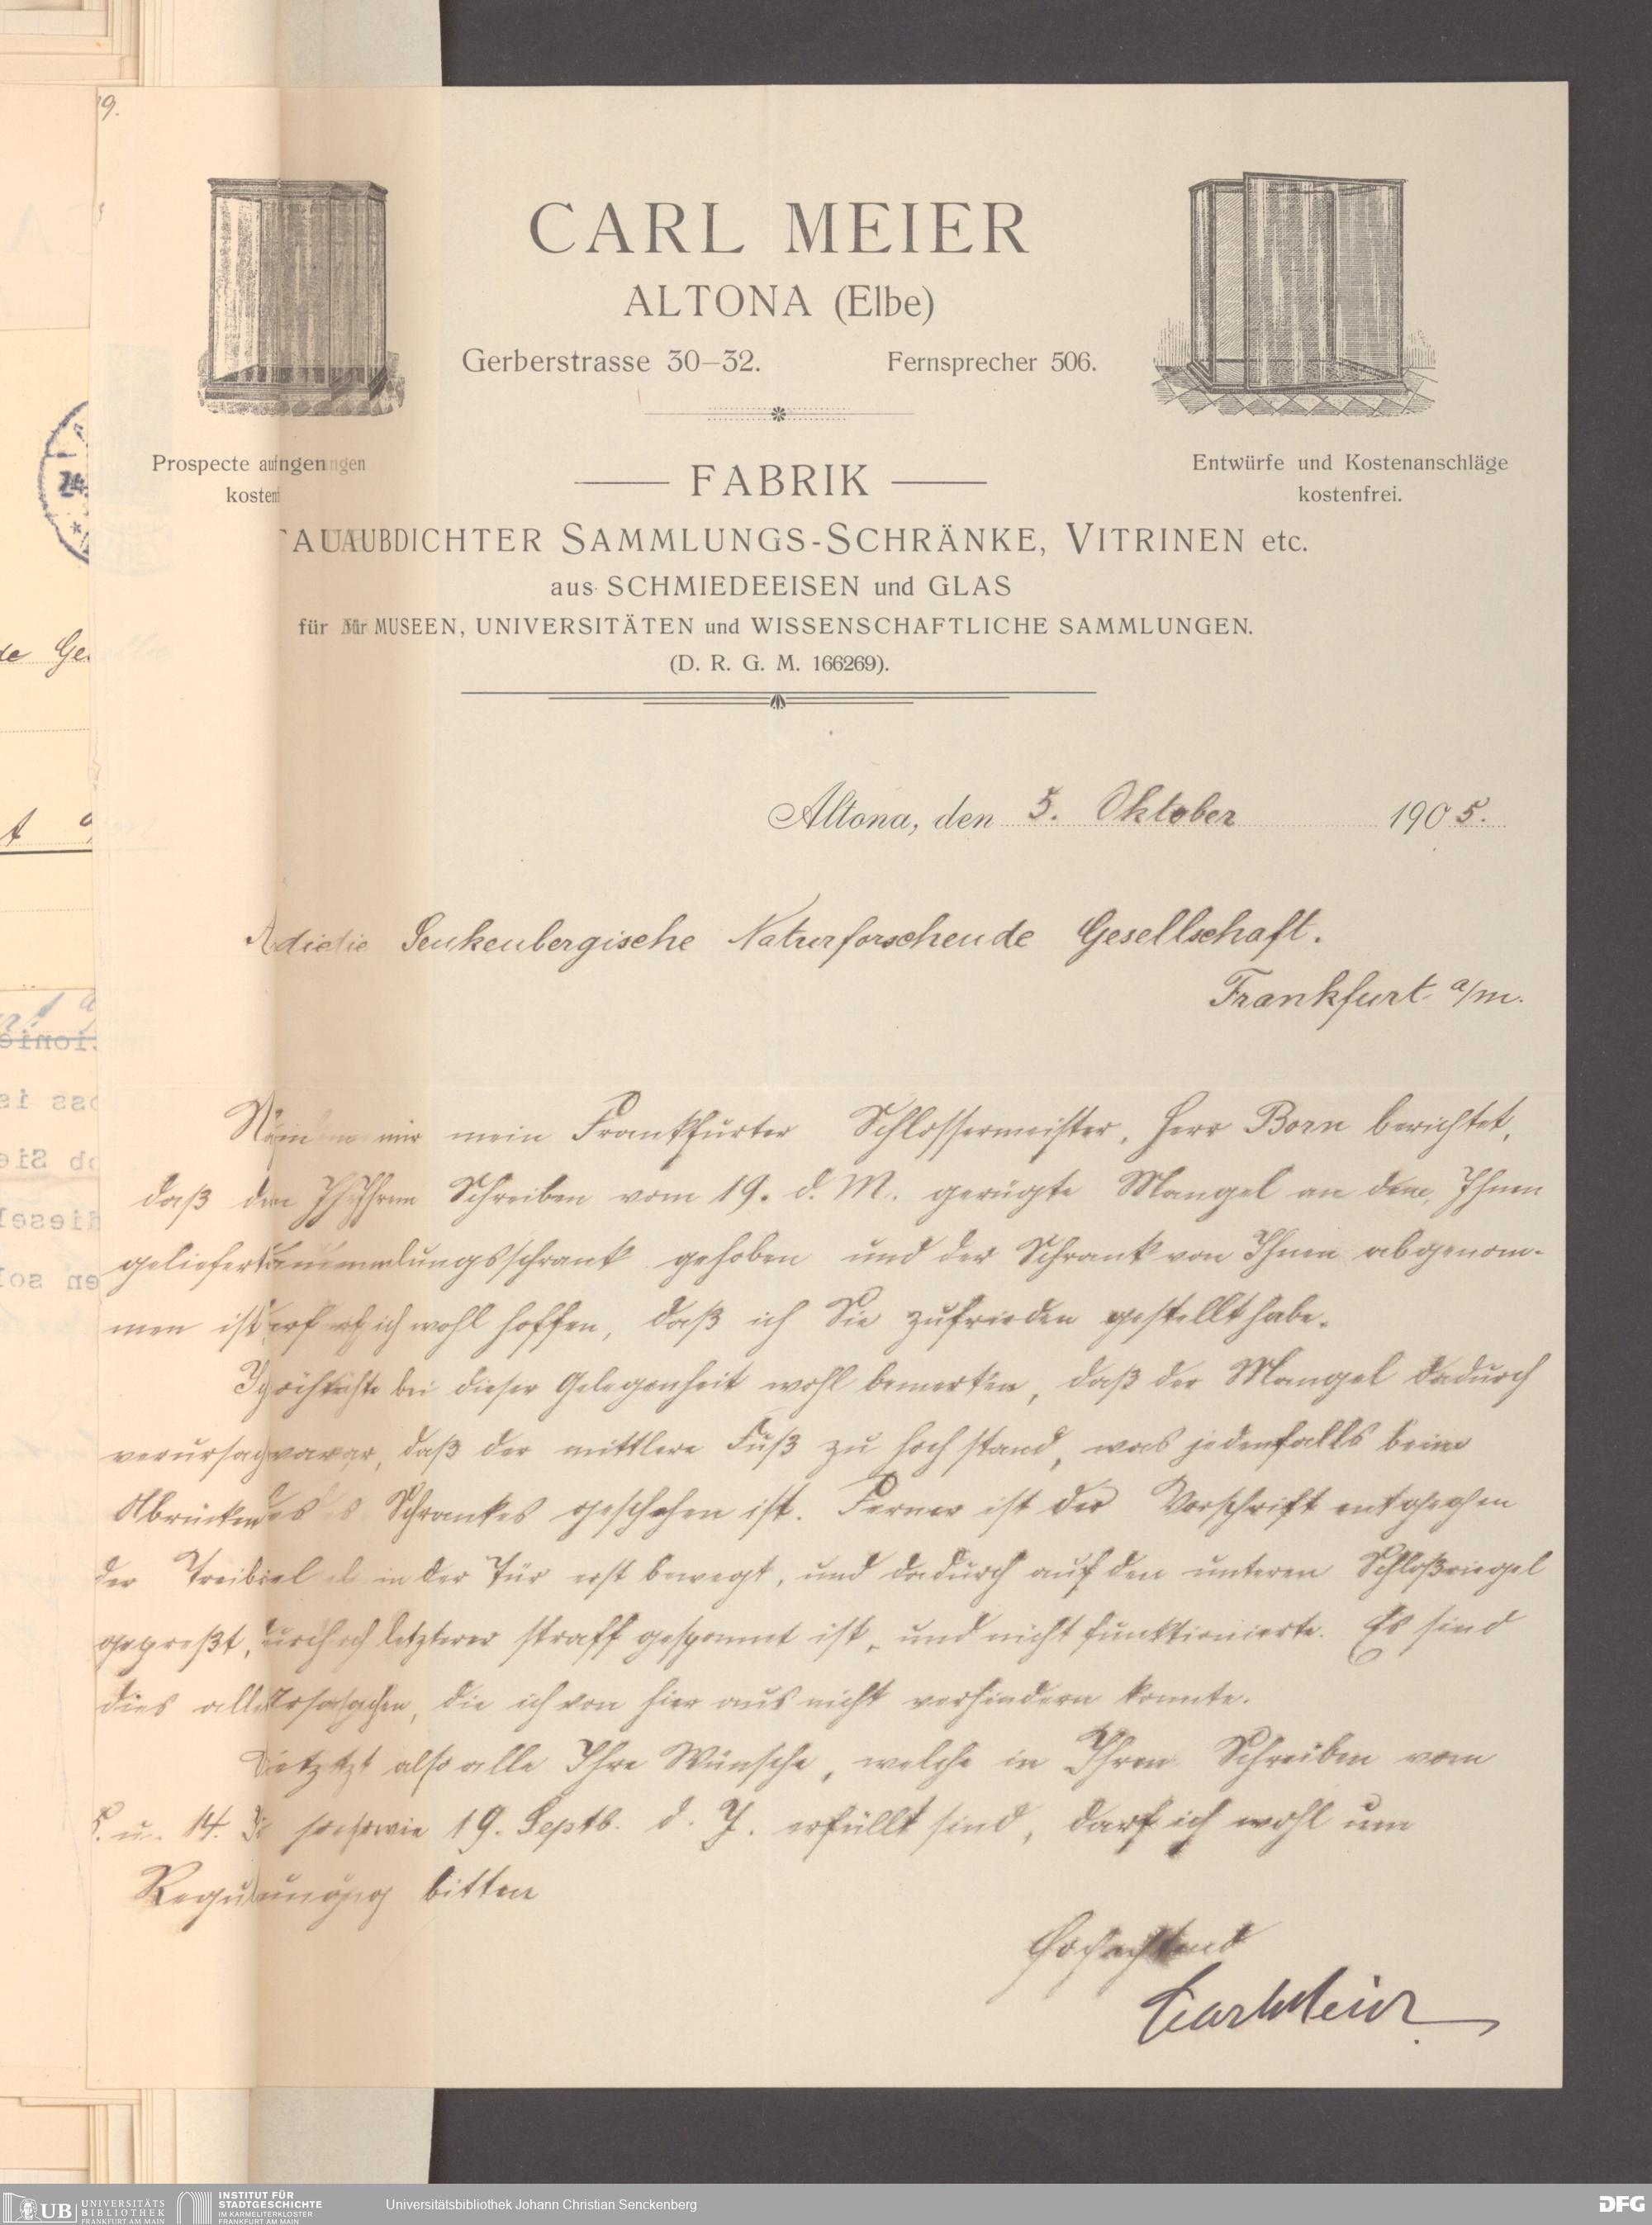 19.
CARL MEIER
ALTONA (Elbe)
Gerberstrasse 30–32. Fernsprecher 506.
Prospecte
Entwürfe und Kostenanschläge
kostenfrei.
FABRIK
STAUBDICHTER SAMMLUNGS-SCHRÄNKE, VITRINEN etc.
aus SCHMIEDEEISEN und GLAS
für MUSEEN, UNIVERSITÄTEN und WISSENSCHAFTLICHE SAMMLUNGEN.
(D. R. G. M. 166269).
Altona, den 5. Oktober 1905.
An die Senkenbergische Naturforschende Gesellschaft.
Frankfurt a/m.
mir mein Frankfurter Schlossermeister, Herr Born berichtet,
daß der Ihrem Schreiben vom 19. d. M. gerügte Mangel an dem Ihnen
gelieferten Sammlungsschrank gehoben und der Schrank von Ihnen abgenom-
men ist, darf ich wohl hoffen, daß ich Sie zufrieden gestellt habe.
Ich möchte bei dieser Gelegenheit wohl bemerken, daß der Mangel dadurch
verursacht war, daß der mittlere Fuß zu hoch stand, was jedenfalls beim
Abrücken des Schrankes geschehen ist. Ferner ist der Vorschrift entgegen
der in der Tür erst bewegt, und dadurch auf den unteren Schloßriegel
gepreßt, wodurch letzterer straff gespannt ist, und nicht funktionierte. Es sind
dies alles Ursachen, die ich von hier aus nicht verhindern konnte.
Da jetzt also alle Ihre Wünsche, welche in Ihrem Schreiben vom
u. 14. sowie 19. Septb. d. J. erfüllt sind, darf ich wohl um
Regulierung bitten
Hochachtend
Carl Meier
UB UNIVERSITÄTS
BIBLIOTHEK
FRANKFURT AM MAIN
INSTITUT FÜR
STADTGESCHICHTE
IM KARMELITERKLOSTER
FRANKFURT AM MAIN
Universitätsbibliothek Johann Christian Senckenberg
DFG